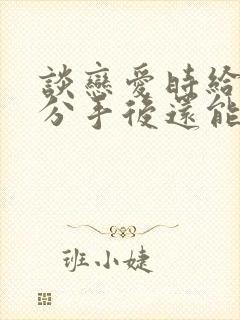 談戀愛時給
分手後還能
班小婕